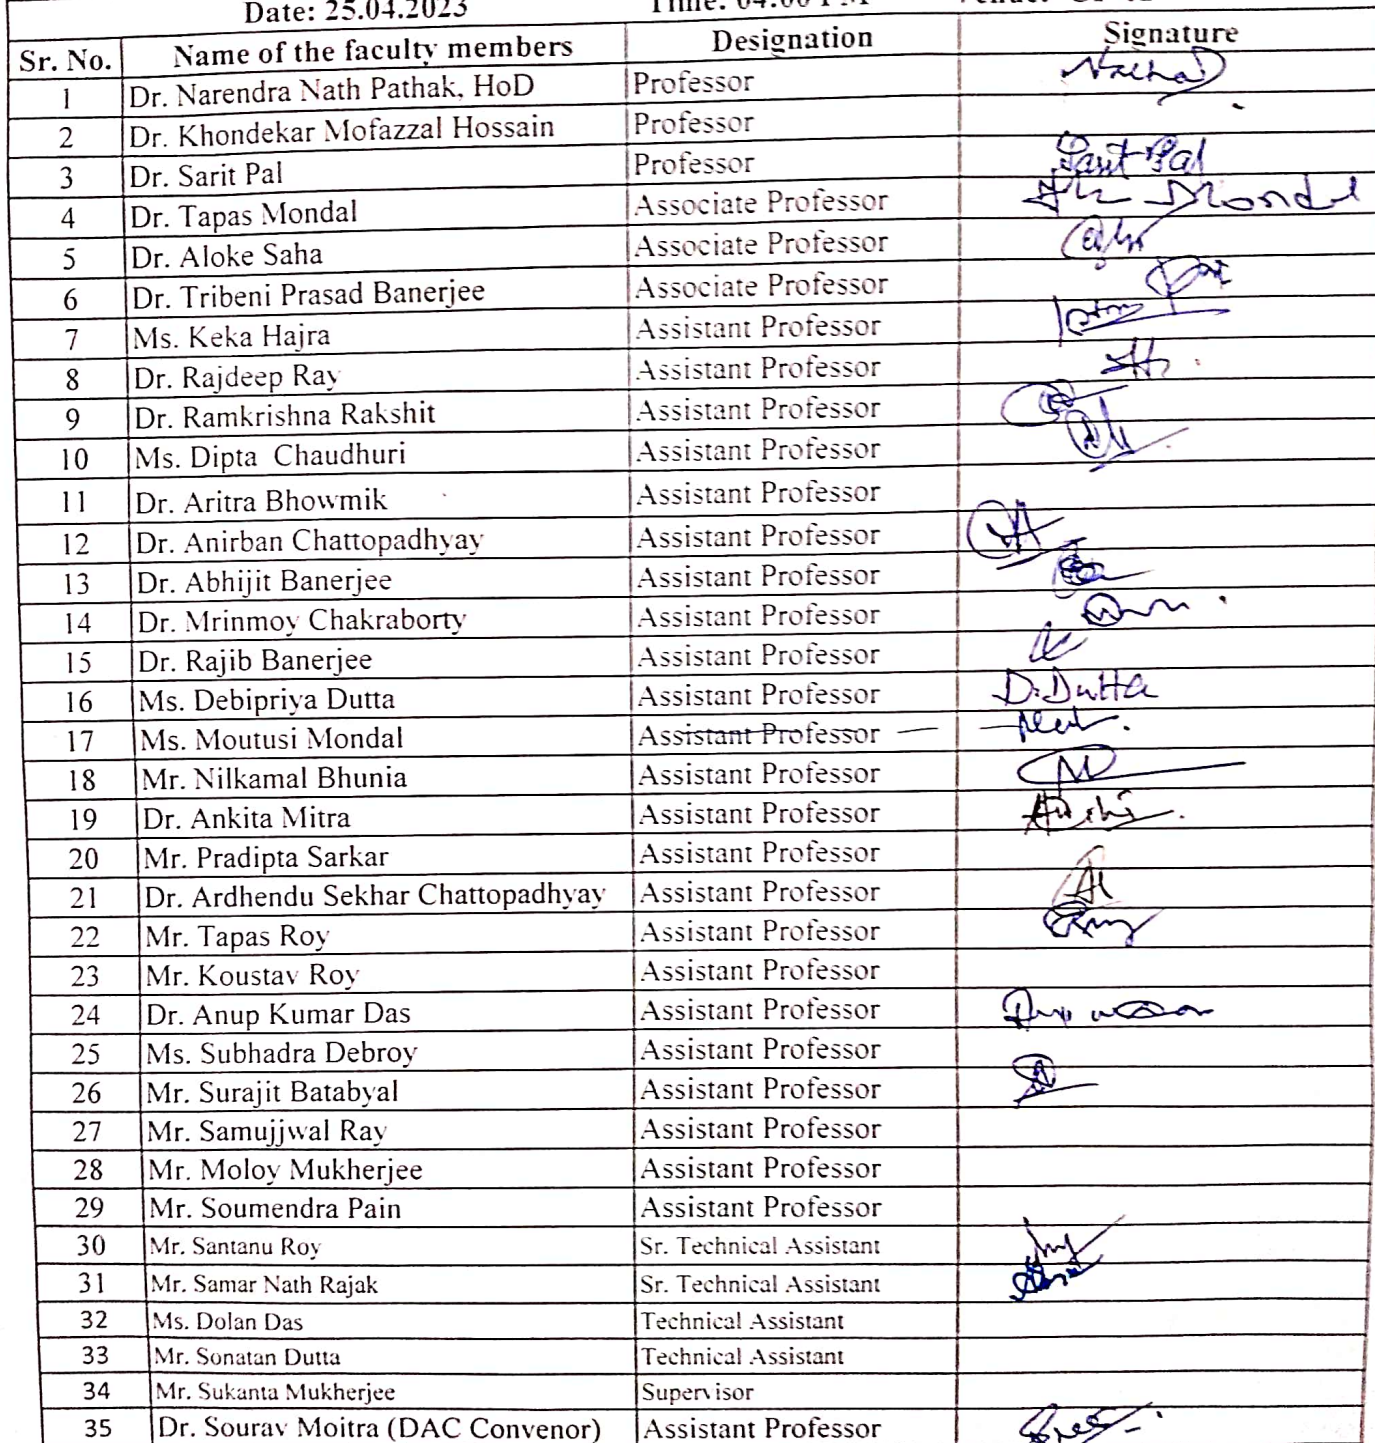 Date: 25.04.2023 Time: 04:00 PM
Sr. No. Name of the faculty members Designation Signature
1 Dr. Narendra Nath Pathak, HoD Professor
2 Dr. Khondekar Mofazzal Hossain Professor
3 Dr. Sarit Pal Professor Sarit Pal
4 Dr. Tapas Mondal Associate Professor Mondal
5 Dr. Aloke Saha Associate Professor
6 Dr. Tribeni Prasad Banerjee Associate Professor
7 Ms. Keka Hajra Assistant Professor
8 Dr. Rajdeep Ray Assistant Professor
9 Dr. Ramkrishna Rakshit Assistant Professor
10 Ms. Dipta Chaudhuri Assistant Professor
11 Dr. Aritra Bhowmik Assistant Professor
12 Dr. Anirban Chattopadhyay Assistant Professor
13 Dr. Abhijit Banerjee Assistant Professor
14 Dr. Mrinmoy Chakraborty Assistant Professor
15 Dr. Rajib Banerjee Assistant Professor
16 Ms. Debipriya Dutta Assistant Professor D. Dutta
17 Ms. Moutusi Mondal Assistant Professor
18 Mr. Nilkamal Bhunia Assistant Professor
19 Dr. Ankita Mitra Assistant Professor
20 Mr. Pradipta Sarkar Assistant Professor
21 Dr. Ardhendu Sekhar Chattopadhyay Assistant Professor
22 Mr. Tapas Roy Assistant Professor
23 Mr. Koustav Roy Assistant Professor
24 Dr. Anup Kumar Das Assistant Professor
25 Ms. Subhadra Debroy Assistant Professor
26 Mr. Surajit Batabyal Assistant Professor
27 Mr. Samujjwal Ray Assistant Professor
28 Mr. Moloy Mukherjee Assistant Professor
29 Mr. Soumendra Pain Assistant Professor
30 Mr. Santanu Roy Sr. Technical Assistant
31 Mr. Samar Nath Rajak Sr. Technical Assistant
32 Ms. Dolan Das Technical Assistant
33 Mr. Sonatan Dutta Technical Assistant
34 Mr. Sukanta Mukherjee Supervisor
35 Dr. Sourav Moitra (DAC Convenor) Assistant Professor